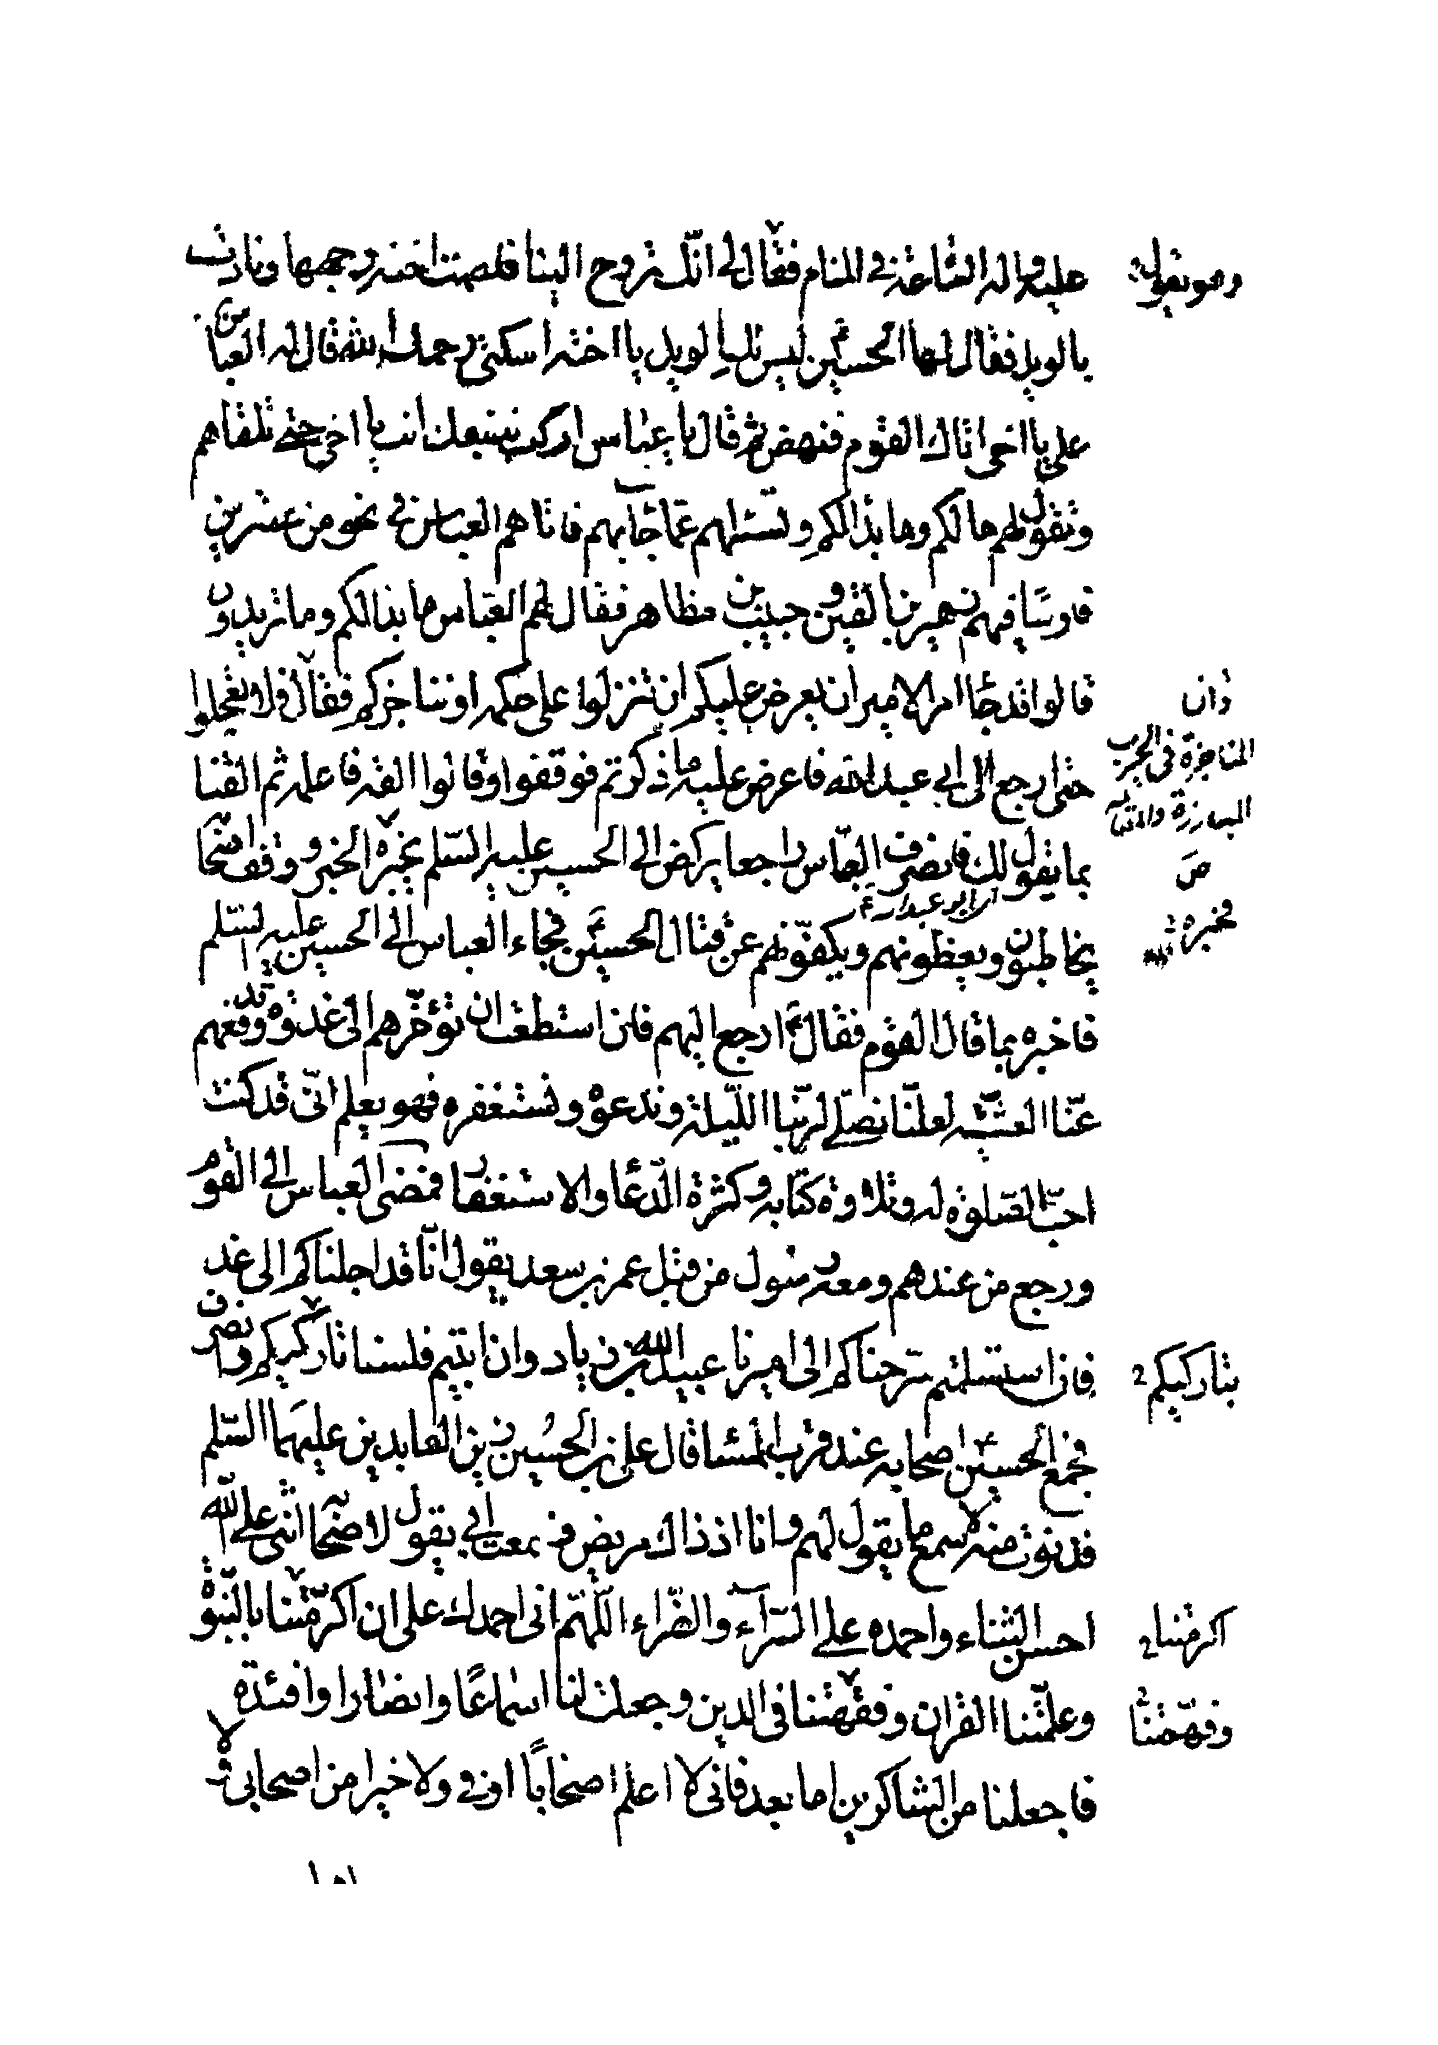 عليه واله الساعة في المنام فقال لي انّك تروح الينا فلطمت اخته وجهها ونادت
وهو يقول
بالويل فقال لها الحسين ليس لك الويل يا اخته اسكتي رحمك الله قال له العباس بن
علي يا اخي اتاك القوم فنهض ثم قال يا عباس اركب بنفسك انت يا اخي حتى تلقاهم
وتقول لهم ما لكم وما بدالكم وتسئلهم عمّا جآء بهم فاتاهم العباس في نحو من عشرين
فارسًا فيهم زهير بن القين وحبيب بن مظاهر فقال لهم العباس ما بدالكم وما تريدون
قالوا قد جاء امر الامير ان يعرض عليكم ان تنزلوا على حكمه او نناجزكم فقال فلا تعجلوا
وان
المناجزة في الحرب
المبارزة والمقاتلة
ص
حتى ارجع الى ابي عبد الله فاعرض عليه ما ذكرتم فوقفوا وقالوا القه فاعلمه ثم القنا
بما يقول لك فانصرف العباس راجعا يركض الى الحسين عليه السّلم يخبره الخبر ووقف اصحابه
يخاطبون ويعظونهم ويكفّونهم عن قتال الحسين فجاء العباس الى الحسين عليه السلم
فخبره
فاخبره بما قال القوم فقال ارجع اليهم فان استطعت ان تؤخّرهم الى غدوة وتدفعهم
عنّا العشيّه لعلّنا نصلّي لربّنا اللّيلة وندعوه ونستغفره فهو يعلم انّي قد كنت
احبّ الصلوة له وتلاوة كتابه وكثرة الدّعاء والاستغفار فمضى العباس الى القوم
ورجع من عندهم ومعه رسول من قبل عمر بن سعد يقول انّا قد اجلناكم الى غد
فان استسلمتم سرحناكم الى اميرنا عبيد الله بن زياد وان ابيتم فلسنا تاركيكم وانصرف
بتاركيكم
فجمع الحسين اصحابه عند قرب المساء قال علي بن الحسين زين العابدين عليهما السّلم
فدنوت منه لاسمع ما يقول لهم وانا اذ ذاك مريض فسمعت ابي يقول لاصحابه اثني على الله
احسن الثناء واحمده على السّرآء والضّراء اللّهمّ اني احمدك على ان اكرمّتنا بالنّبوّة
اكرمتنا
وعلّمتنا القران وفقّهتنا في الدين وجعلت لنا اسماعًا وابصارا وافئدة
وفهّمتنا
فاجعلنا من الشاكرين اما بعد فاني لا اعلم اصحابًا اوفى ولا خيرا من اصحابي ولا